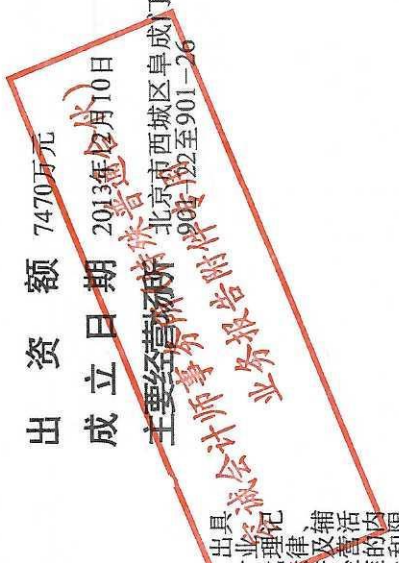 出资额 7470万元
成立日期 2013年12月10日
主要经营场所 北京市西城区阜成门
901-22至901-26
诚会计师事务所（特殊普通合伙）
业务报告附件专用
出具
业
理记
律、
及辅
营活
的内
和限